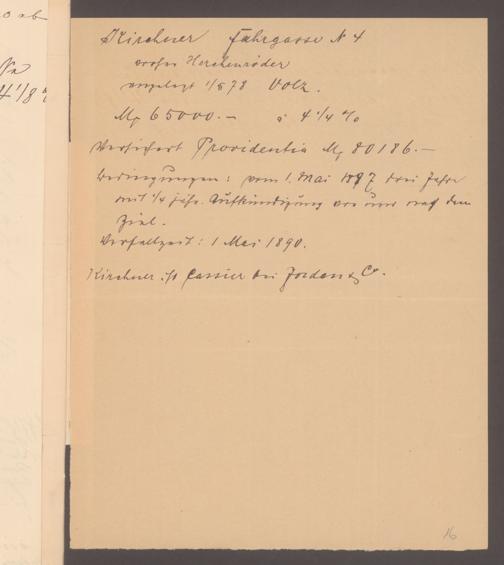 o ab
4 1/8
Kirchner Fahrgasse N 4
vorher Herchenröder
angelegt 1/5 78 Volz.
Mk 65000.– à 4 1/4 %
Versichert Providentia Mk 80186.–
Bedingungen: vom 1. Mai 1887 drei Jahre
mit 1/4 jähr. Aufkündigung vor und nach dem
Ziel.
Verfallzeit: 1 Mai 1890.
Kirchner ist Cassier bei Jordan & Co.
16